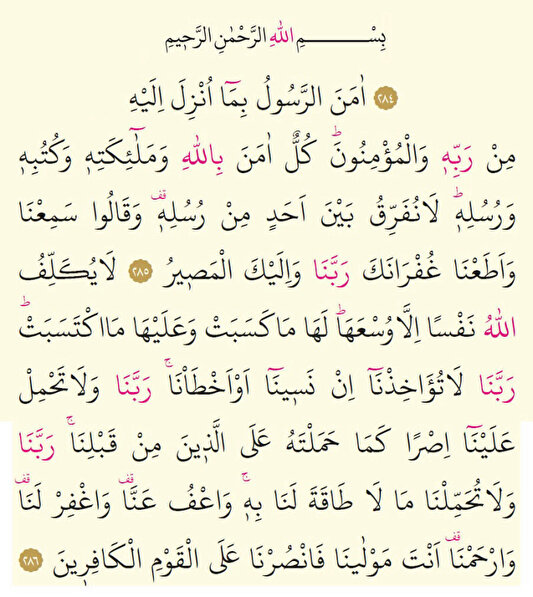 بِسْمِ اللهِ الرَّحْمٰنِ الرَّحِيمِ
﴿٢٨٤﴾ اٰمَنَ الرَّسُولُ بِمَٓا اُنْزِلَ اِلَيْهِ
مِنْ رَبِّه۪ وَالْمُؤْمِنُونَۜ كُلٌّ اٰمَنَ بِاللهِ وَمَلٰٓئِكَتِه۪ وَكُتُبِه۪
وَرُسُلِه۪ۜ لَا نُفَرِّقُ بَيْنَ اَحَدٍ مِنْ رُسُلِه۪۠ وَقَالُوا سَمِعْنَا
وَاَطَعْنَا غُفْرَانَكَ رَبَّنَا وَاِلَيْكَ الْمَص۪يرُ ﴿٢٨٥﴾ لَا يُكَلِّفُ
اللهُ نَفْسًا اِلَّا وُسْعَهَاۜ لَهَا مَا كَسَبَتْ وَعَلَيْهَا مَا اكْتَسَبَتْۜ
رَبَّنَا لَا تُؤَاخِذْنَٓا اِنْ نَس۪ينَٓا اَوْ اَخْطَأْنَاۚ رَبَّنَا وَلَا تَحْمِلْ
عَلَيْنَٓا اِصْرًا كَمَا حَمَلْتَهُ عَلَى الَّذ۪ينَ مِنْ قَبْلِنَاۚ رَبَّنَا
وَلَا تُحَمِّلْنَا مَا لَا طَاقَةَ لَنَا بِه۪ۚ وَاعْفُ عَنَّا۠ وَاغْفِرْ لَنَا۠
وَارْحَمْنَا۠ اَنْتَ مَوْلٰينَا فَانْصُرْنَا عَلَى الْقَوْمِ الْكَافِر۪ينَ ﴿٢٨٦﴾